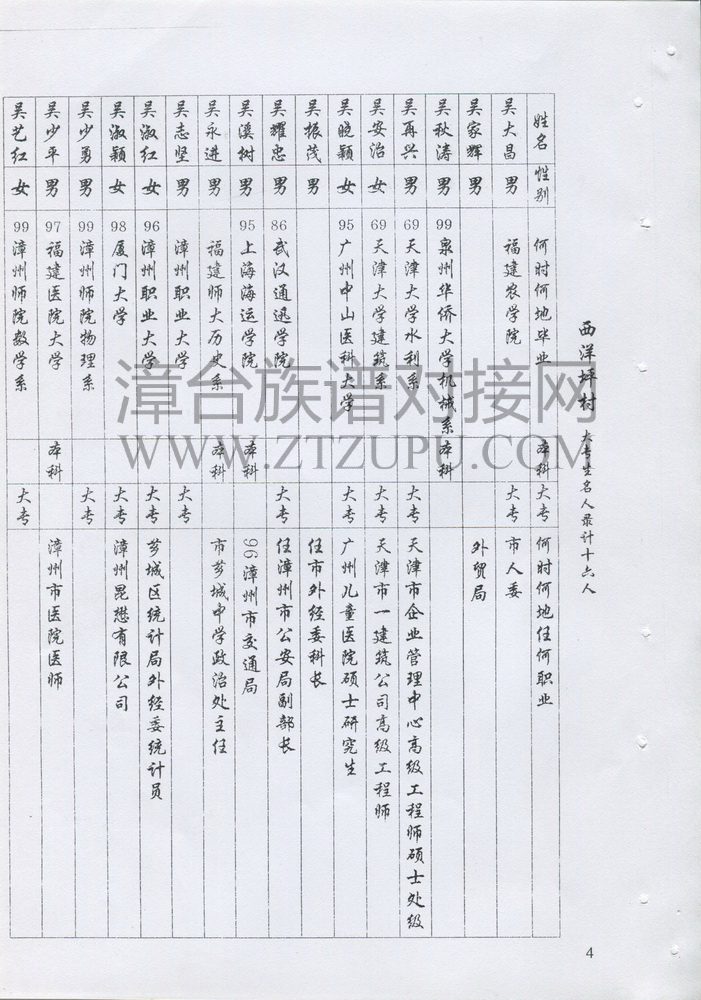 西洋坪村 大专生名人录计十六人
姓名 性别 何时何地毕业 本科 大专 何时何地任何职业
吴大昌 男 福建农学院 大专 市人委
吴家辉 男 外贸局
吴秋涛 男 99泉州华侨大学机械系 本科
吴再兴 男 69天津大学水利系 大专 天津市企业管理中心高级工程师硕士处级
吴安治 女 69天津大学建筑系 大专 天津市一建筑公司高级工程师
吴晓颖 女 95广州中山医科大学 大专 广州儿童医院硕士研究生
吴振茂 男 任市外经委科长
吴耀忠 男 86武汉通迅学院 大专 任漳州市公安局副部长
吴溪树 男 95上海海运学院 本科 96漳州市交通局
吴永进 男 福建师大历史系 本科 市芗城中学政治处主任
吴志坚 男 漳州职业大学 大专
吴淑红 女 96漳州职业大学 大专 芗城区统计局外经委统计员
吴淑颖 女 98厦门大学 大专 漳州昆懋有限公司
吴少勇 男 99漳州师院物理系 大专
吴少平 男 97福建医院大学 本科 漳州市医院医师
吴艺红 女 99漳州师院数学系 大专
漳台族谱对接网
WWW.ZTZUPU.COM
4